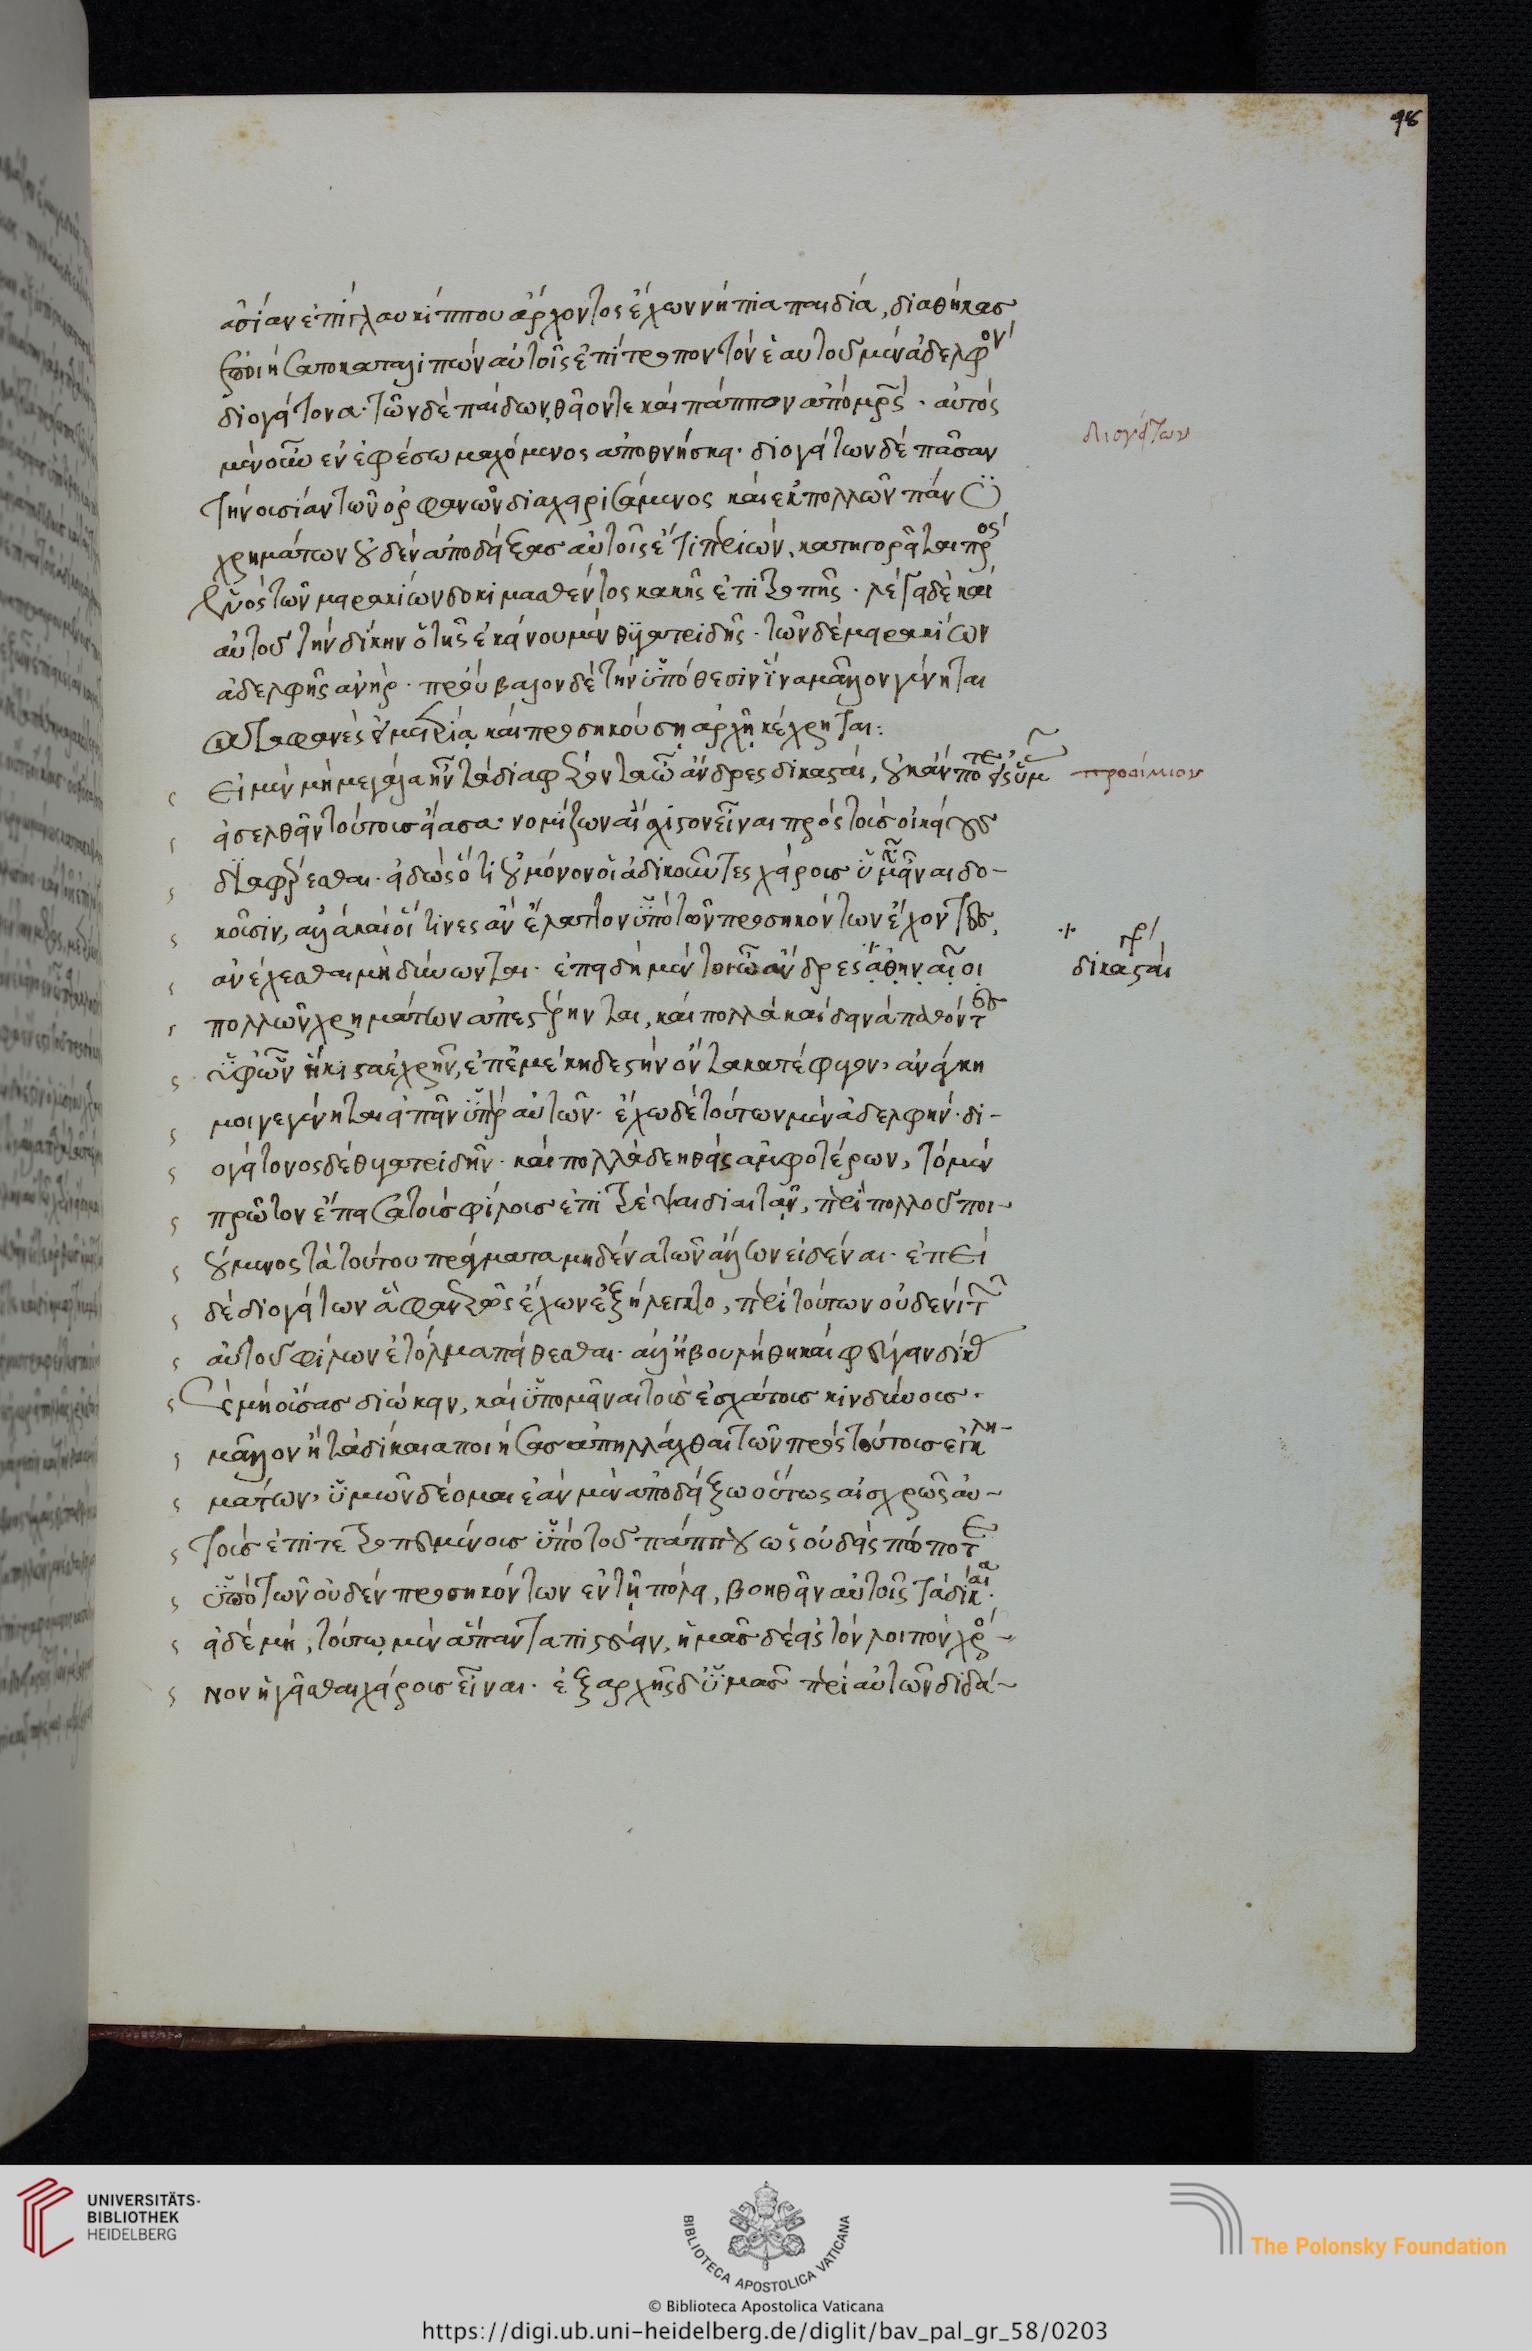 98
ἀσίαν ἐπὶ γλαυκίππου ἄρχοντος ἔχων νήπια παιδία, διαθήκας
ἐποιήσατο καταλιπὼν αὐτοῖς ἐπίτροπον τὸν ἑαυτοῦ μὲν ἀδελφὸν
διογείτονα· τῶν δὲ παίδων, θεῖόν τε καὶ πάππον ἀπὸ μρς· αὐτὸς
διογείτων
μὲν οὖν ἐν ἐφέσω μαχόμενος ἀποθνήσκει· διογείτων δὲ πᾶσαν
τὴν οὐσίαν τῶν ὀρφανῶν διαχειρισάμενος καὶ ἐκ πολλῶν πάνυ
χρημάτων οὐδὲν ἀποδείξας αὐτοῖς ἔτι περιὼν, κατηγορεῖται πρὸς
ἑνὸς τῶν μειρακίων δοκιμασθέντος κακῆς ἐπιτροπῆς· λέγει δὲ καὶ
αὐτοῦ τὴν δίκην ὁ τῆς ἐκείνου μὲν θυγατριδῆς· τῶν δὲ μειρακίων
ἀδελφῆς ἀνήρ· προύβαλον δὲ τὴν ὑπόθεσιν ἵνα μᾶλλον γίνηται
καταφανὲς εἰ μετρίᾳ καὶ προσηκούσῃ ἀρχῇ κέχρηται:
Εἰ μὲν μὴ μεγάλα ἦν τὰ διαφέροντα ὦ ἄνδρες δικασταί, οὐκ ἄν ποτε εἰς ὑμᾶς
προοίμιον
εἰσελθεῖν τούτους εἴασα· νομίζων αἴσχιστον εἶναι πρὸς τοὺς οἰκείους
διαφέρεσθαι· εἰδὼς ὅτι οὐ μόνον οἱ ἀδικοῦντες χείρους ὑμῖν εἶναι δο-
κοῦσιν, ἀλλὰ καὶ οἵ τινες ἂν ἔλαττον ὑπὸ τῶν προσηκόντων ἔχοντες,
ἀνέχεσθαι μὴ δύνωνται· ἐπειδὴ μέντοι ὦ ἄνδρες ἀθηναῖοι
δικασταί
πολλῶν χρημάτων ἀπεστέρηνται, καὶ πολλὰ καὶ δεινὰ παθόντες
ὑφ' ὧν ἥκιστα ἐχρῆν, ἐπ' ἐμὲ κηδεστὴν ὄντα κατέφυγον, ἀνάγκη
μοι γεγένηται εἰπεῖν ὑπὲρ αὐτῶν· ἔχω δὲ τούτων μὲν ἀδελφήν· δι-
ογείτονος δὲ θυγατριδῆν· καὶ πολλὰ δεηθεὶς ἀμφοτέρων, τὸ μὲν
πρῶτον ἔπεισα τοὺς φίλους ἐπιτρέψαι δίαιταν, περὶ πολλοῦ ποι-
ούμενος τὰ τούτου πράγματα μηδένα τῶν ἄλλων εἰδέναι· ἐπεὶ
δὲ διογείτων ἃ φανερῶς ἔχων ἐξήλεγκτο, περὶ τούτων οὐδενὶ τῶν
αὐτοῦ φίλων ἐτόλμα πείθεσθαι· ἀλλ' ἠβουλήθη καὶ φεύγειν δίκας
καὶ μὴ οὔσας διώκειν, καὶ ὑπομεῖναι τοὺς ἐσχάτους κινδύνους·
μᾶλλον ἢ τὰ δίκαια ποιήσας ἀπηλλάχθαι τῶν πρὸς τούτους ἐγκλη-
μάτων, ὑμῶν δέομαι ἐὰν μὲν ἀποδείξω οὕτως αἰσχρῶς αὐ-
τοὺς ἐπιτετροπευμένους ὑπὸ τοῦ πάππου ὡς οὐδεὶς πώποτε
ὑπὸ τῶν οὐδὲν προσηκόντων ἐν τῇ πόλει, βοηθεῖν αὐτοῖς τὰ δίκαια·
εἰ δὲ μή, τούτῳ μὲν ἅπαντα πιστεύειν, ἡμᾶς δὲ εἰς τὸν λοιπὸν χρό-
νον ἡγεῖσθαι χείρους εἶναι· ἐξ ἀρχῆς δ' ὑμᾶς περὶ αὐτῶν διδά-
UNIVERSITÄTS-
BIBLIOTHEK
HEIDELBERG
BIBLIOTECA APOSTOLICA VATICANA
The Polonsky Foundation
© Biblioteca Apostolica Vaticana
https://digi.ub.uni-heidelberg.de/diglit/bav_pal_gr_58/0203